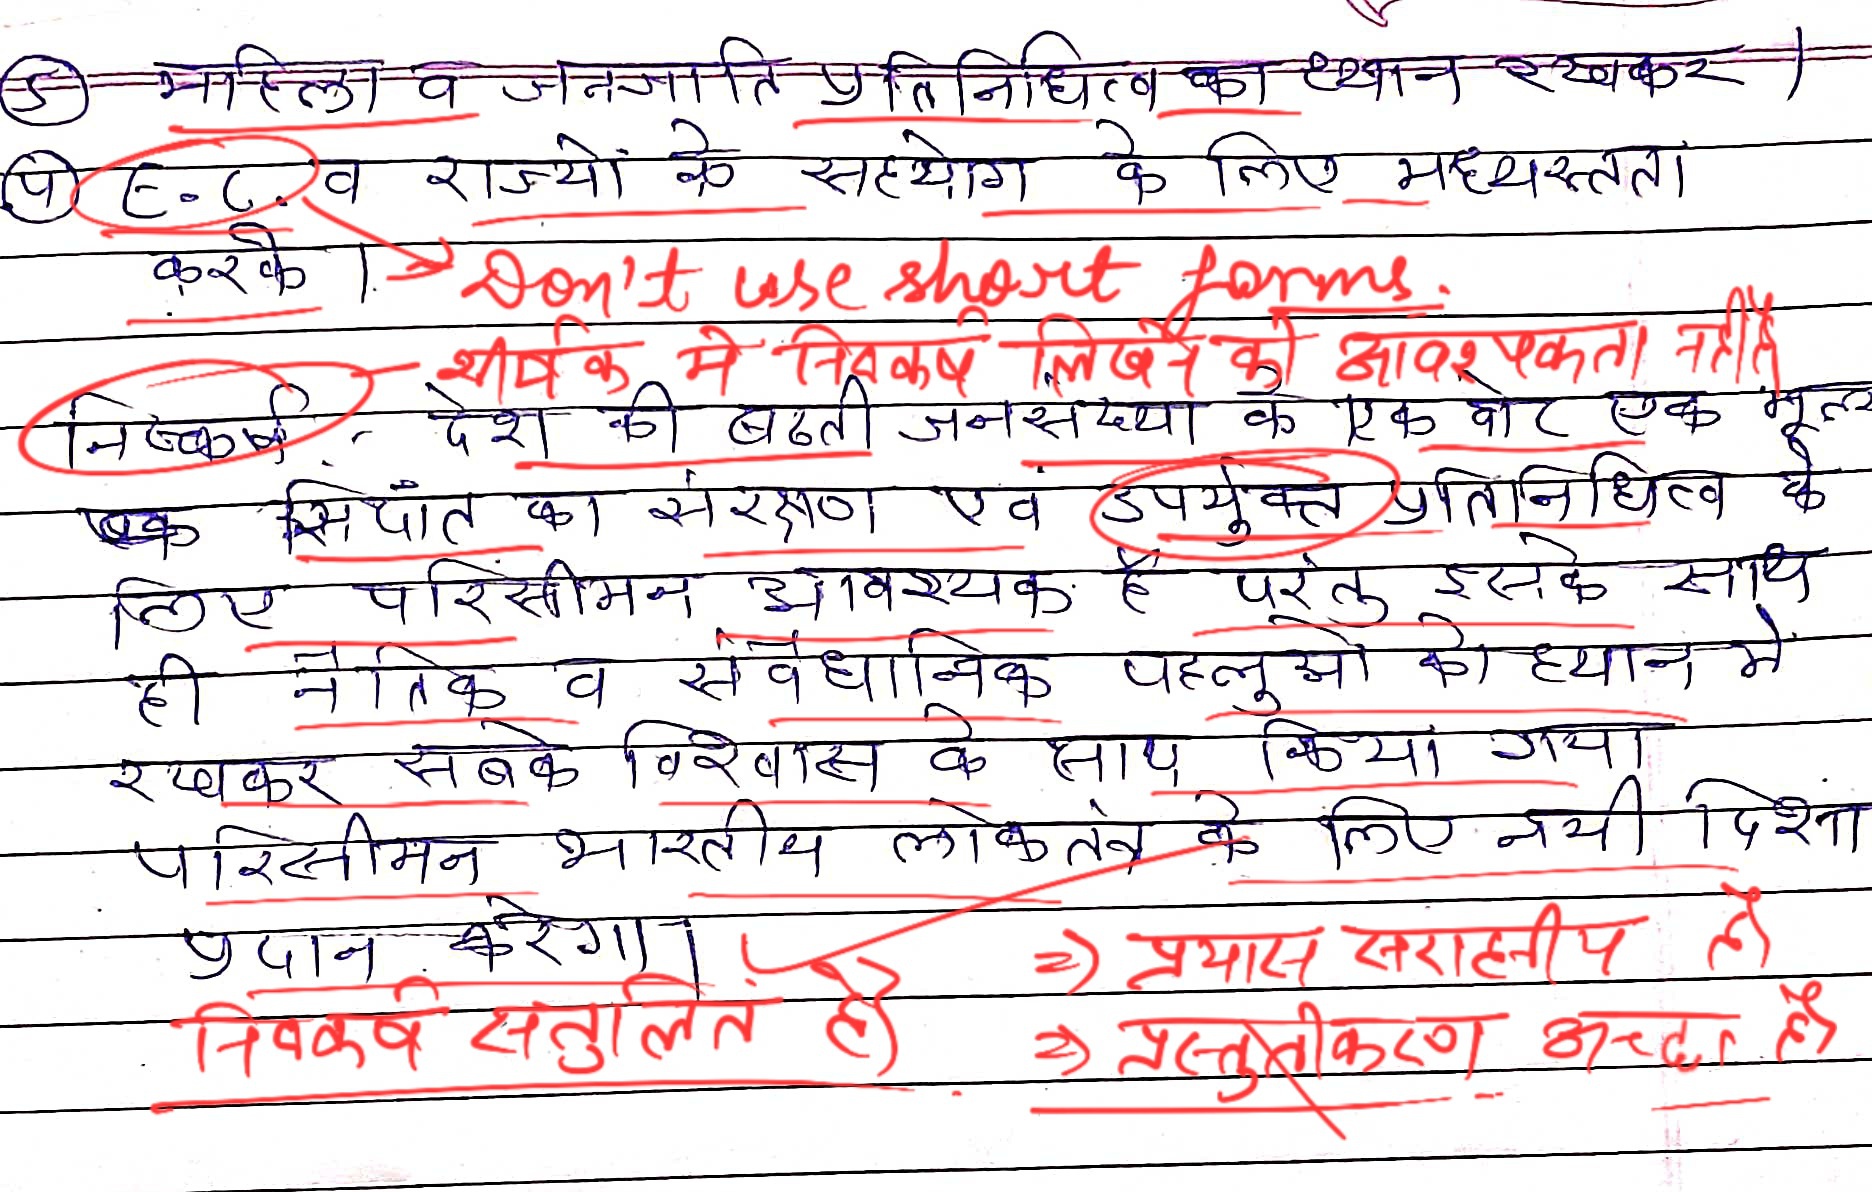 (5) महिला व जनजाति प्रतिनिधित्व का ध्यान रखकर।
(प) E.C. व राज्यों के सहयोग के लिए मध्यस्तता
करके।
Don't use short forms.
शीर्षक मे निष्कर्ष लिखने की आवश्यकता नहीं है
निष्कर्ष :- देश की बढती जनसंख्या के एक वोट एक मूल्य
सिद्धांत का संरक्षण एवं उपर्युक्त प्रतिनिधित्व के
लिए परिसीमन आवश्यक है परंतु इसके साथ
ही नैतिक व संवैधानिक पहलुओ को ध्यान मे
रखकर सबके विश्वास के साथ किया गया
परिसीमन भारतीय लोकतंत्र के लिए नयी दिशा
प्रदान करेगा।
निष्कर्ष सतुलित है
=) प्रयास सराहनीय है
=) प्रस्तुतीकरण अच्छा है